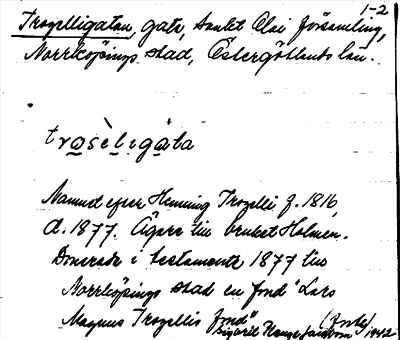 1-2
Trozelligatan, gata, Sankt Olai församling,
Norrköpings stad, Östergötlands län.
trosèligáta
Namnet efter Henning Trozelli f. 1816,
d. 1877. Ägare till bruket Holmen.
Donerade i testamente 1877 till
Norrköpings stad en fond "Lars
Magnus Trozellis fond"
Sigurd 1942